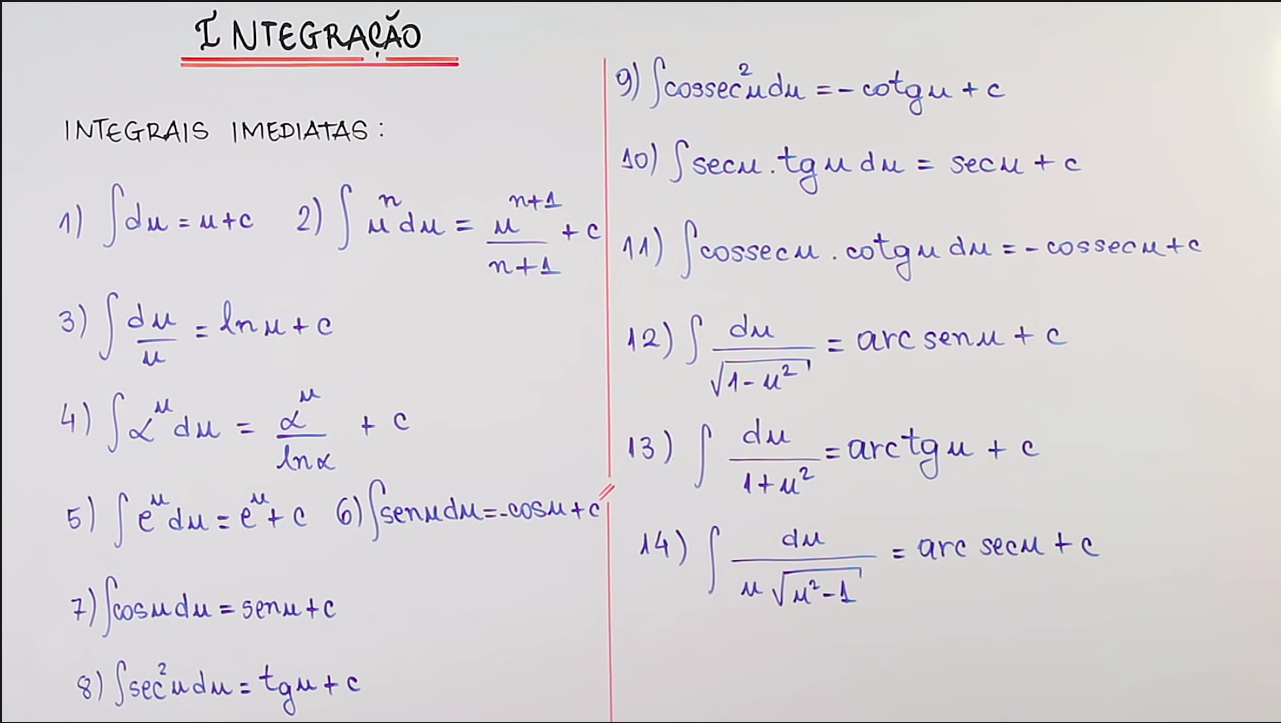 INTEGRAÇÃO
INTEGRAIS IMEDIATAS:
1) ∫du = u + c 2) ∫uⁿdu = uⁿ⁺¹/n+1 + c
3) ∫du/u = ln u + c
4) ∫α^u du = α^u/ln α + c
5) ∫e^u du = e^u + c 6) ∫sen u du = -cos u + c
7) ∫cos u du = sen u + c
8) ∫sec²u du = tg u + c
9) ∫cossec²u du = - cotg u + c
10) ∫sec u . tg u du = sec u + c
11) ∫cossec u . cotg u du = - cossec u + c
12) ∫du/√(1-u²) = arc sen u + c
13) ∫du/1+u² = arc tg u + c
14) ∫du/u√(u²-1) = arc sec u + c